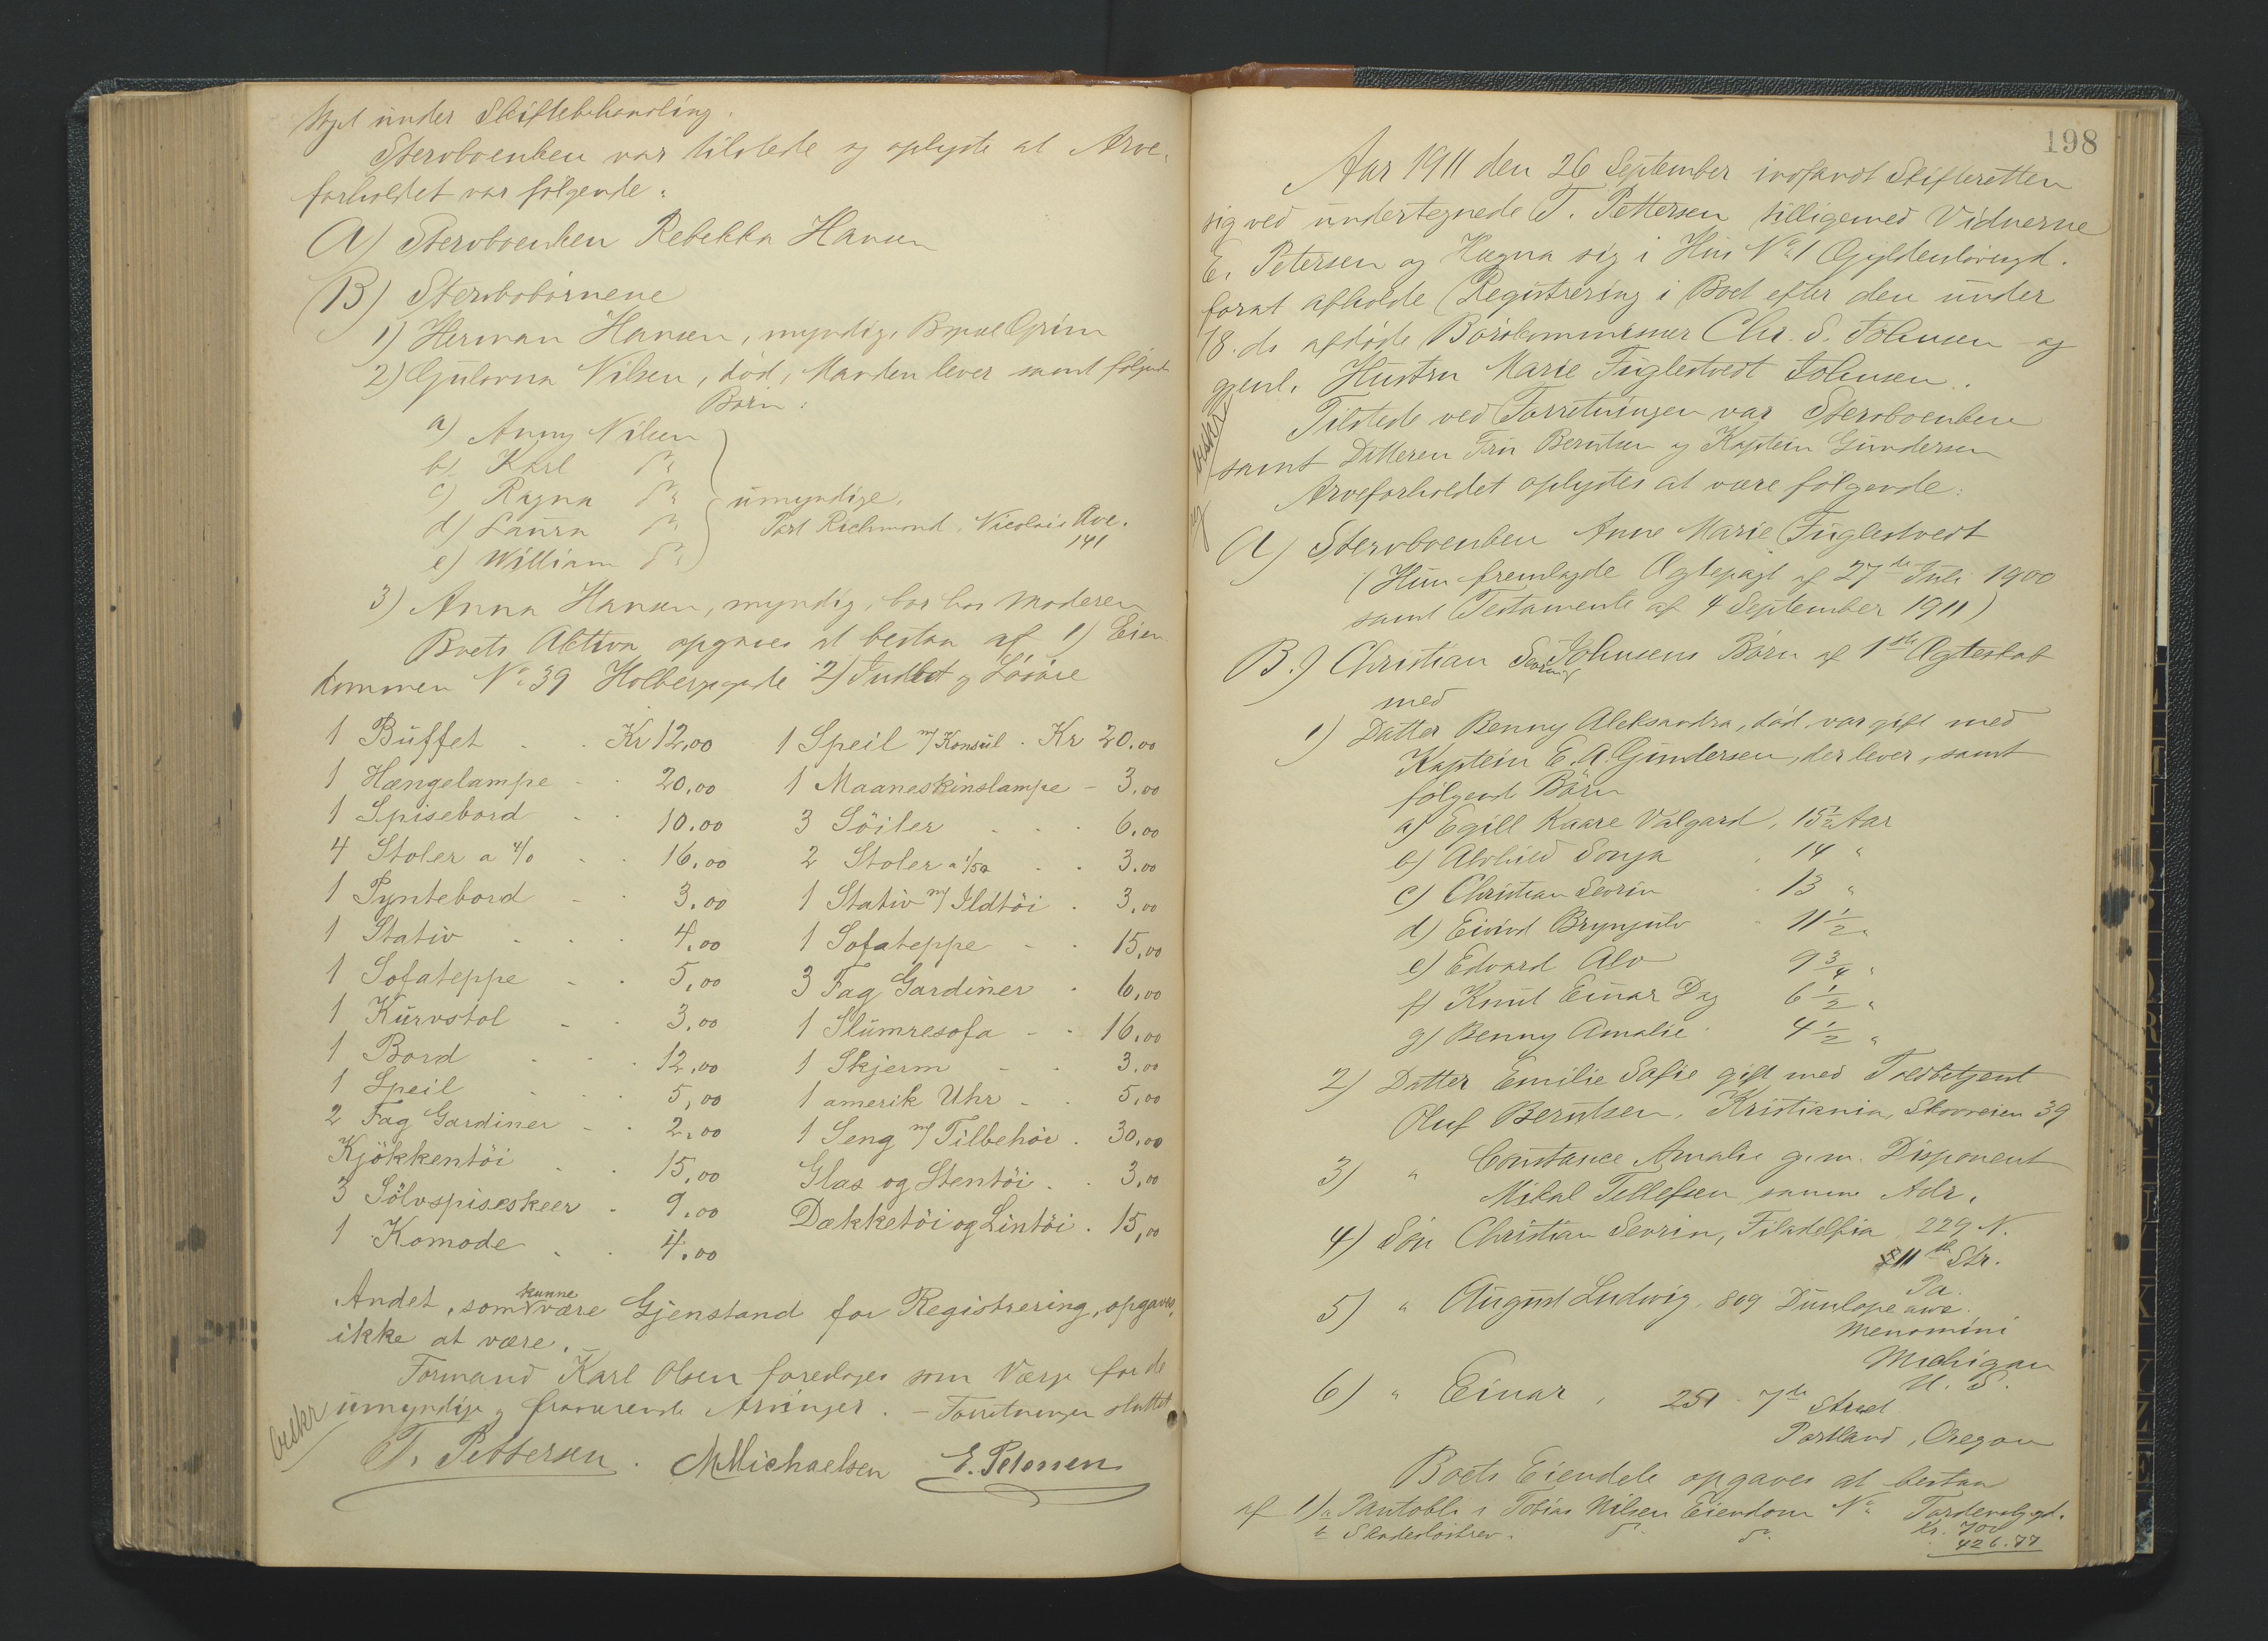 under Skiftebehandling.
Stervboenken var tilstede og oplyste at Arve-
forholdet var følgende:
A) Stervboenken Rebekka Hansen
B) Stervbobørnene
1) Herman Hansen, myndig, Grim
2) Gulovna Nilsen, død, Manden lever samt følgende
Børn:
a) Anny Nilsen
b) Karl do
c) Ragna do umyndige.
d) Laura do Port Richmond, Nicolais Ave.
141
e) William do
3) Anna Hansen, myndig, bor hos Moderen
Boets Aktiva opgaves at bestaa af 1) Eien-
dommen No 39 Holbergsgade 2) Indbo og Løsøre
1 Buffet . . Kr 12,00 1 Speil m/Konsul . Kr 20.00
1 Hængelampe - . 20,00 1 Maaneskinslampe - 3,00
1 Spisebord . . 10.00 3 Söiler . . . 6,00
4 Stoler a 4/0 . . 16,00 2 Stoler a 1/50 . . 3.00
1 Pyntebord - . 3.00 1 Stativ m/ Ildtöi . 3,00
1 Stativ . . . 4,00 1 Sofateppe - . 15,00
1 Sofateppe - . 5,00 3 Fag Gardiner . 6,00
1 Kurvstol - . 3.00 1 Slumresofa - . 16,00
1 Bord . . . 12,00 1 Skjerm - . 3.00
1 Speil . . . 5,00 1 amerik Uhr - . 5,00
2 Fag Gardiner - . 2,00 1 Seng m/ Tilbehör . 30,00
Kjökkentöi . . 15,00 Glas og Stentöi . . 3,00
3 Sölvspiseskeer - 9.00 Dækketöi og Lintöi . 15,00
1 Komode . . 4.00
Andet, som kunne være Gjenstand for Registrering, opgaves
ikke at være.
Formand Karl Olsen foreslages som Værge for de
umyndige og fraværende Arvinger. - Forretningen sluttet
beskr
T. Pettersen. M Michaelsen E. Petersen
198
Aar 1911 den 26 September indfandt Skifteretten
sig ved undertegnede T. Pettersen tilligemed Vidnerne
E. Petersen og Hagna sig i Hus No 1 Gyldenløvesgd.
forat afholde Registrering i Boet efter den under
18. ds afdøde Børskommissær Chr. S. Johnsen og
gjenl. Hustru Marie Fuglestvedt Johnsen.
beskr
Tilstede ved Forretningen var Stervboenken
samt Datteren Fru Berntsen og Kaptein Gundersen
Arveforholdet oplystes at være følgende:
A) Stervboenken Anne Marie Fuglestvedt
(Hun fremlagde Ægtepagt af 27de Juli 1900
samt Testamente af 4 September 1911)
B.) Christian Sevrin Johnsens Børn af 1ste Ægteskab
med
1) Datter Benny Aleksandra, død, var gift med
Kaptein E. A. Gundersen, der lever, samt
følgende Børn
a) Egill Kaare Valgard, 15 1/2 Aar
b) Alvhild Sonja , 14 "
c) Christian Sevrin . 13 "
d) Eivind Brynjulv " 11 1/2 "
e) Edvard Alv 9 3/4 "
f) Knut Einar Dag 6 1/2 "
g) Benny Amalie 4 1/2 "
2) Datter Emilie Sofie gift med Toldbetjent
Oluf Berntsen, Kristiania, Skovveien 39
3) " Constance Amalie g. m. Disponent
Mikal Tellefsen samme Adr.
4) Søn Christian Sevrin, Filadelfia 229 N.
11th Str.
Pa.
5) " August Ludwig, 809 Dunlope ave.
Menomini
Michigan
U. S.
6) " Einar, 251 . 7de Street
Portland, Oregon
Boets Eiendele opgaves at bestaa
af 1) a Pantobl. i Tobias Nilsen Eiendom No Tordenskj.gd.
Kr. 700
b Skadesløsbrev. do do 426.77